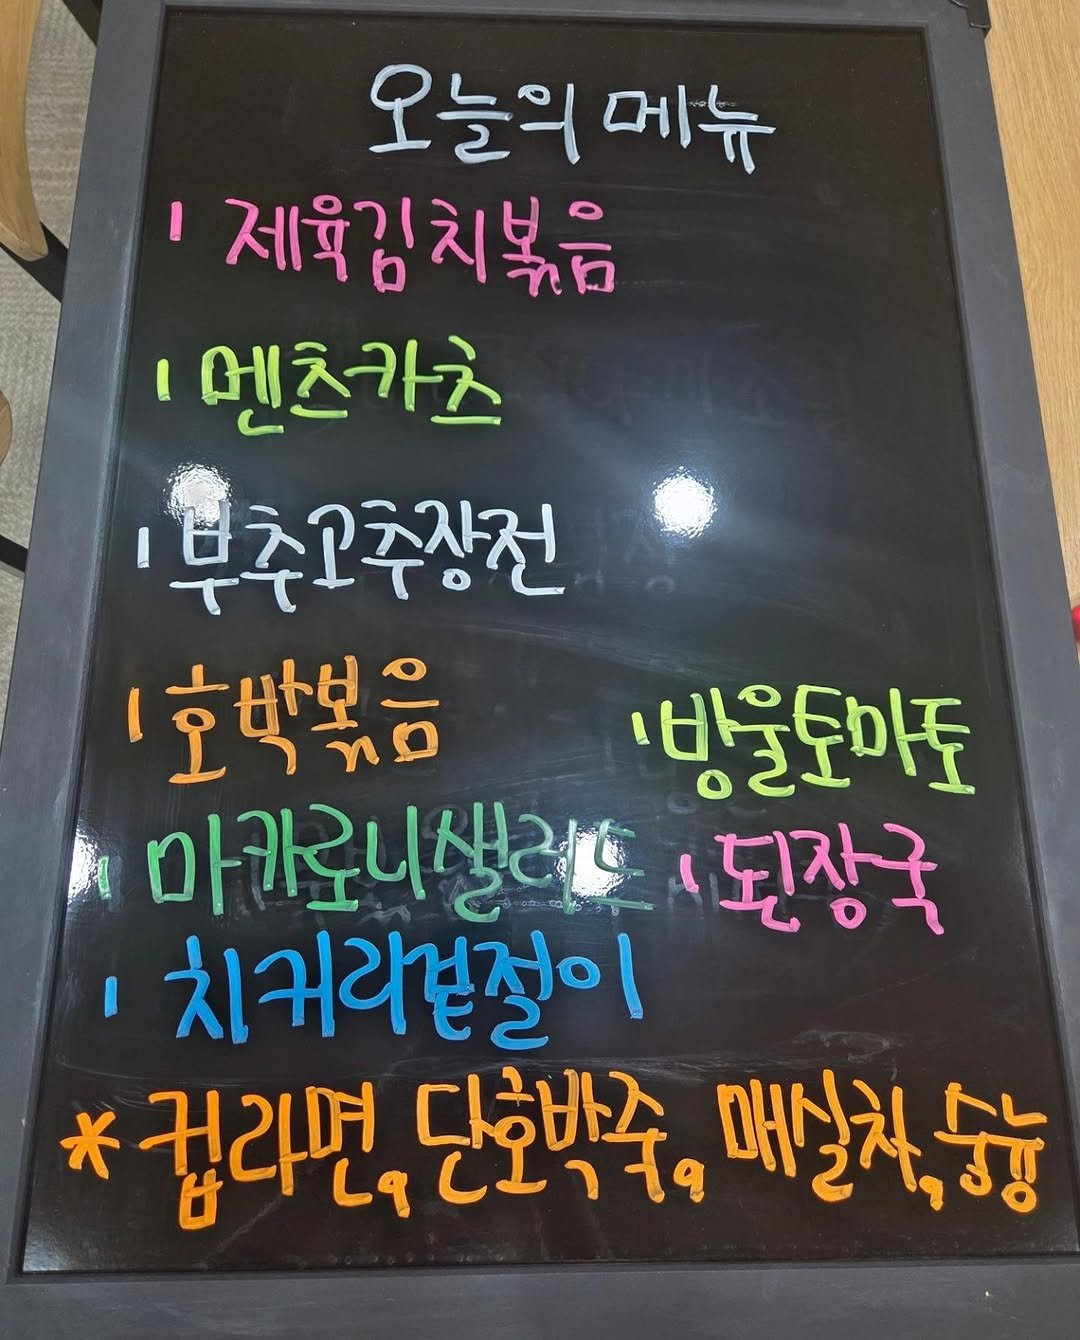 오늘의 메뉴
ı 제육김치볶음
ı 멘츠카츠
ı 부추고추장전
ı 호박볶음
ı 방울토마토
ı 마카로니샐러드
ı 된장국
ı 치커리겉절이
* 컵라면, 단호박죽, 매실차, 숭늉